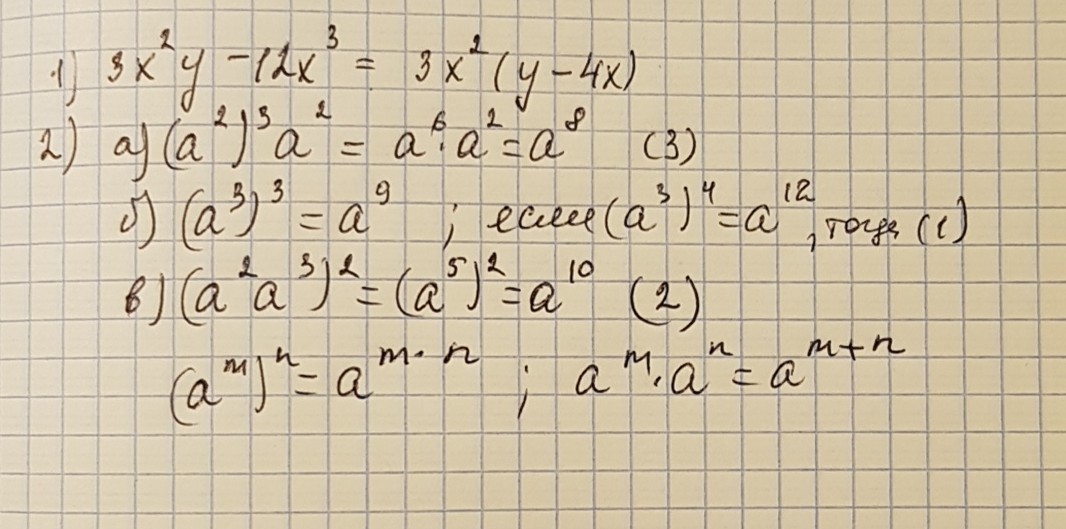 1) 3x²y - 12x³ = 3x²(y - 4x)
2) а) (a²)³a² = a⁶·a² = a⁸ (3)
б) (a³)³ = a⁹ ; если (a³)⁴ = a¹², тогда (1)
в) (a²a³)² = (a⁵)² = a¹⁰ (2)
(aᵐ)ⁿ = aᵐ·ⁿ ; aᵐ·aⁿ = aᵐ⁺ⁿ